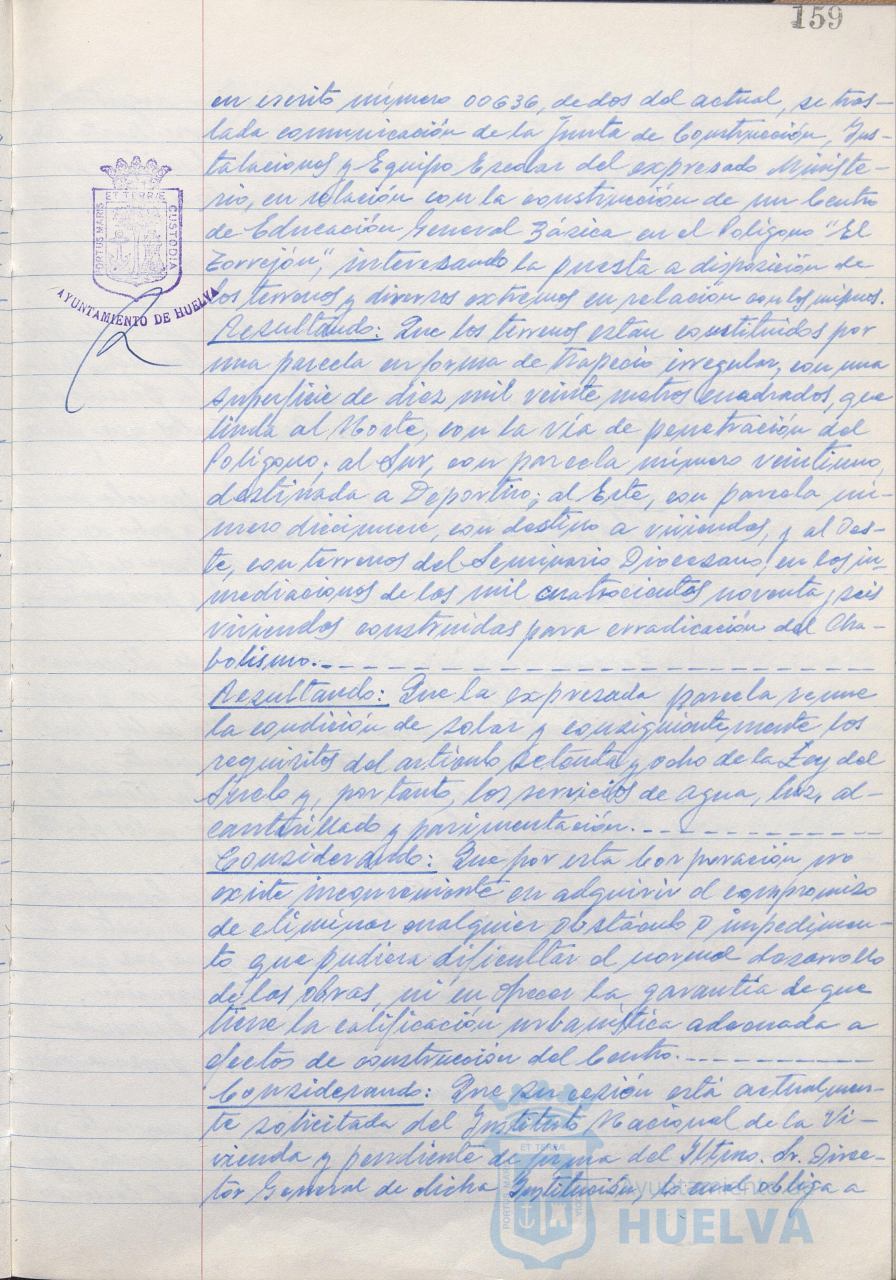 159
en escrito número 00636, de dos del actual, se tras-
lada comunicación de la Junta de Construcción, Ins-
talaciones y Equipo Escolar del expresado Ministe-
rio, en relación con la construcción de un Centro
de Educación General Básica en el Polígono "El
Torrejón", interesando la puesta a disposición de
los terrenos y diversos extremos en relación con los mismos.
Resultando: Que los terrenos estan constituidos por
una parcela en forma de trapecio irregular, con una
superficie de diez mil veinte metros cuadrados, que
linda al Norte, con la vía de penetración del
Polígono; al Sur, con parcela número veintiuno,
destinada a Deportivo; al Este, con parcela nú-
mero diecinueve, con destino a viviendas, y al Oes-
te, con terrenos del Seminario Diocesano, en las in-
mediaciones de las mil cuatrocientas noventa y seis
viviendas construidas para erradicación del Cha-
bolismo.
Resultando: Que la expresada parcela reune
la condición de solar y consiguientemente los
requisitos del artículo setenta y ocho de la Ley del
Suelo y, por tanto, los servicios de agua, luz, al-
cantarillado y pavimentación.
Considerando: Que por esta Corporación no
existe inconveniente en adquirir el compromiso
de eliminar cualquier obstáculo o impedimen-
to que pudiera dificultar el normal desarrollo
de las obras, ni en ofrecer la garantía de que
tiene la calificación urbanística adecuada a
efectos de construcción del Centro.
Considerando: Que su cesión está actualmen-
te solicitada del Instituto Nacional de la Vi-
vienda y pendiente de firma del Iltmo. Sr. Direc-
tor General de dicha Institución, lo cual obliga a
ET TERRÆ
PORTUS MARIS
CUSTODIA
AYUNTAMIENTO DE HUELVA
ET TERRÆ
PORTUS MARIS
Ayuntamiento de
HUELVA